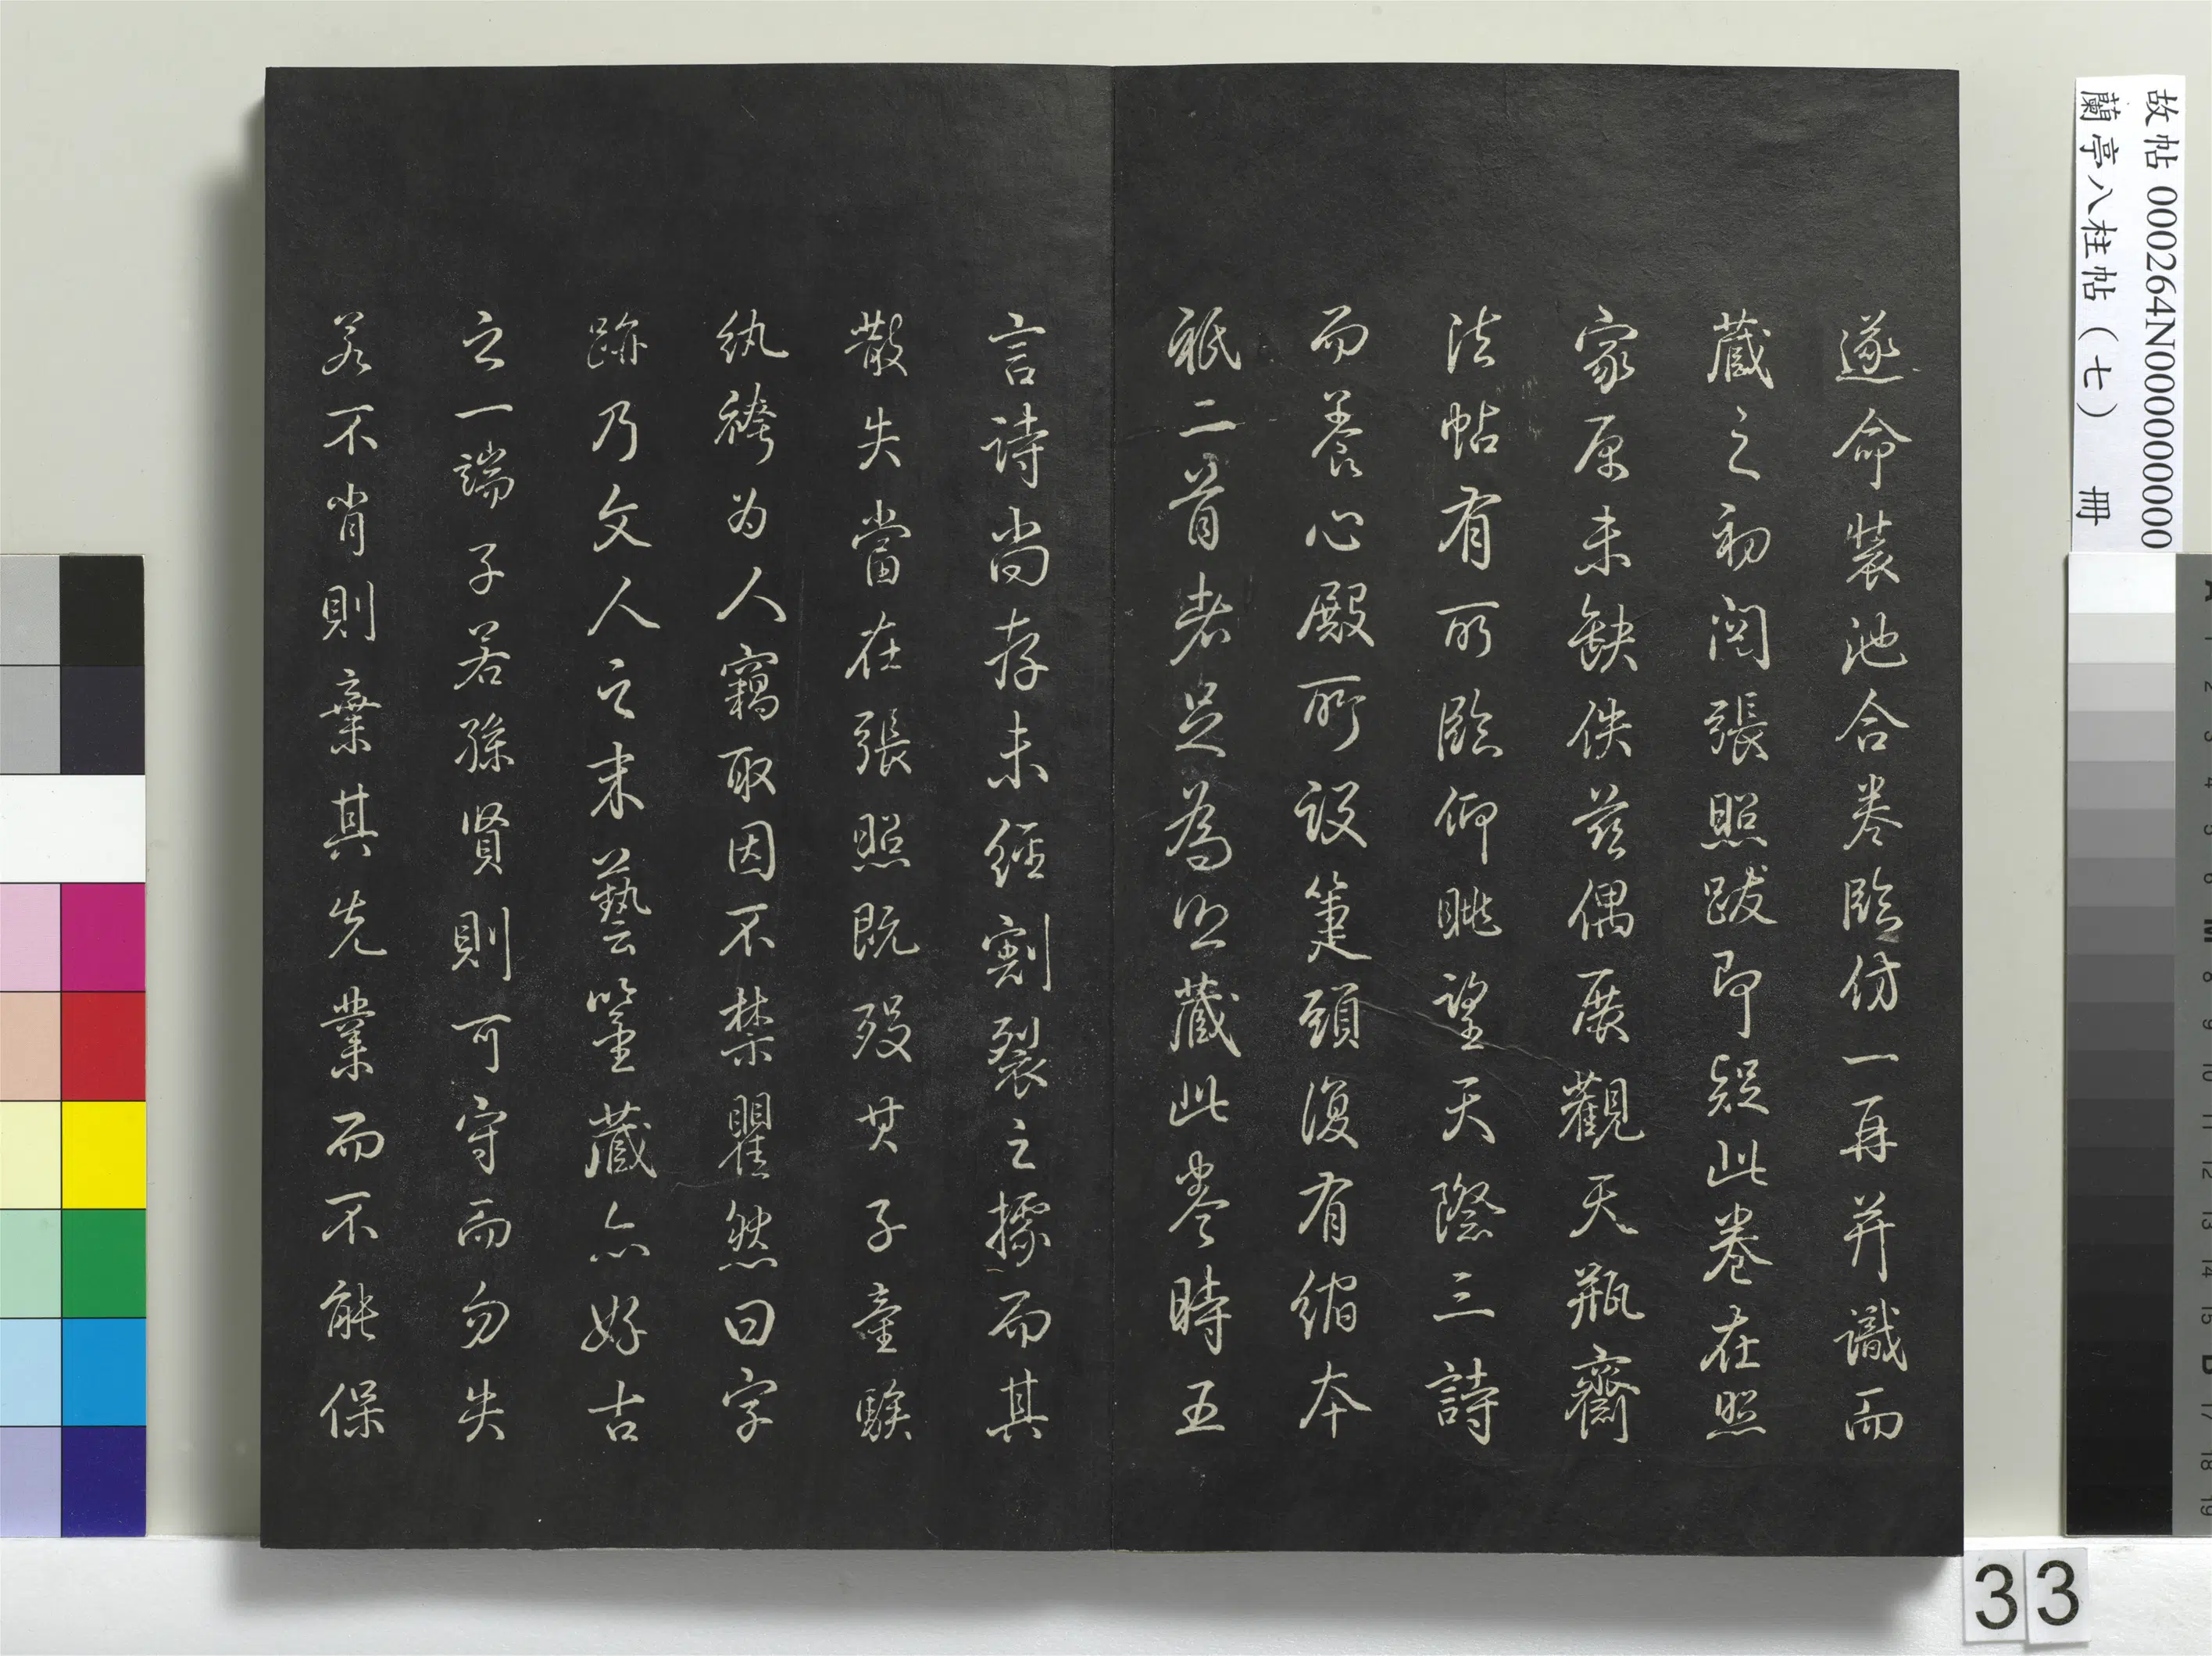 遂命裝池合卷臨仿一再并識而
藏之初閱張照跋即疑此卷在照
家原未缺佚茲偶展觀天瓶齋
法帖有所臨仰眺望天際三詩
而養心殿所設箑頭復有縮本
祇二首者足為照藏此卷時五
言詩尚存未經割裂之據而其
散失當在張照既歿其子童騃
紈袴为人竊取因不禁瞿然曰字
跡乃文人之末藝鑒藏亦好古
之一端子若孫賢則可守而勿失
若不肖則棄其先業而不能保
故帖 000264N000000000
蘭亭八柱帖（七） 冊
33